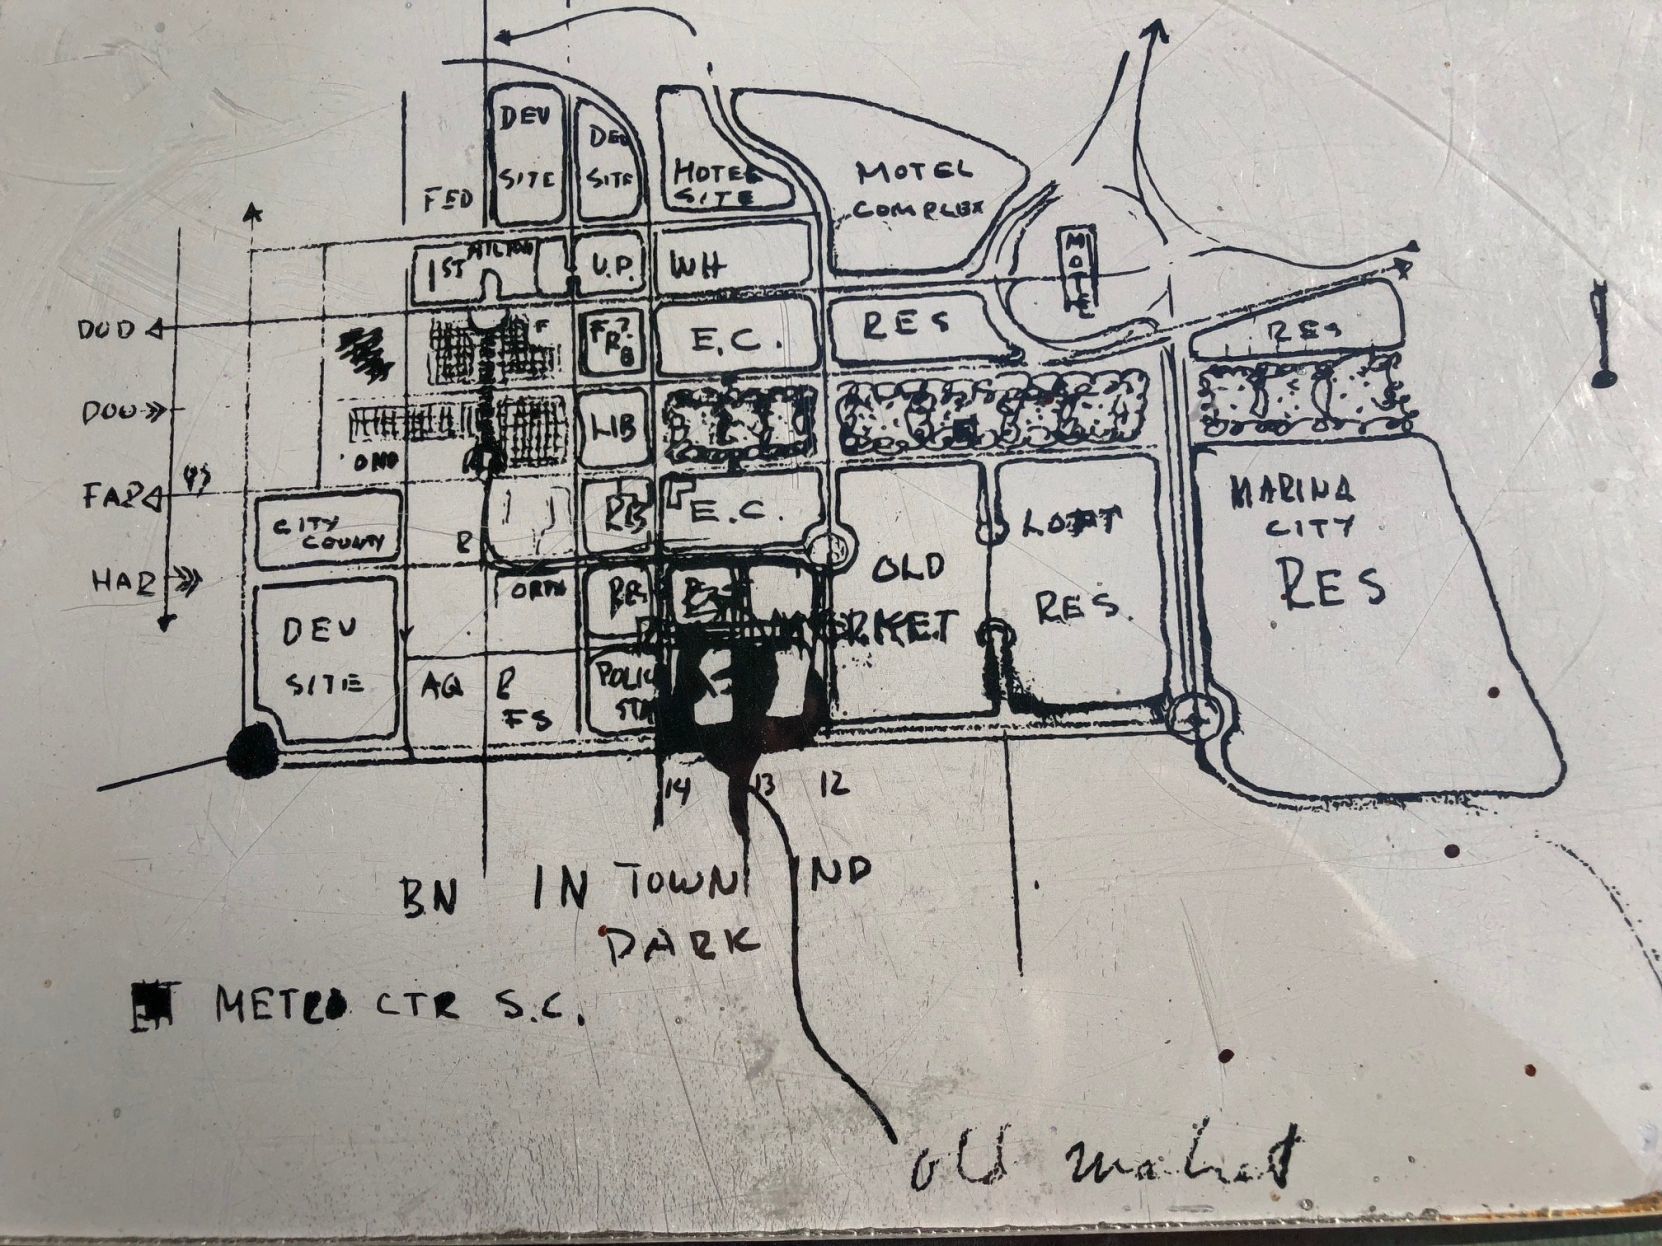 DEV
SITE
DEV
SITE
HOTEL
SITE
MOTEL
COMPLEX
FED
1ST
HILTON
U.P.
WH
MOTEL
DOD
F
E.C.
RES
RES
DOU
LIB
OND
FAR
CITY
COUNTY
RB
E.C.
LOFT
RES.
MARINA
CITY
RES
HAR
ORPH
OLD
MARKET
DEV
SITE
AQ
FS
14
13
12
BN
IN TOWN
PARK
IND
METRO CTR S.C.
old market